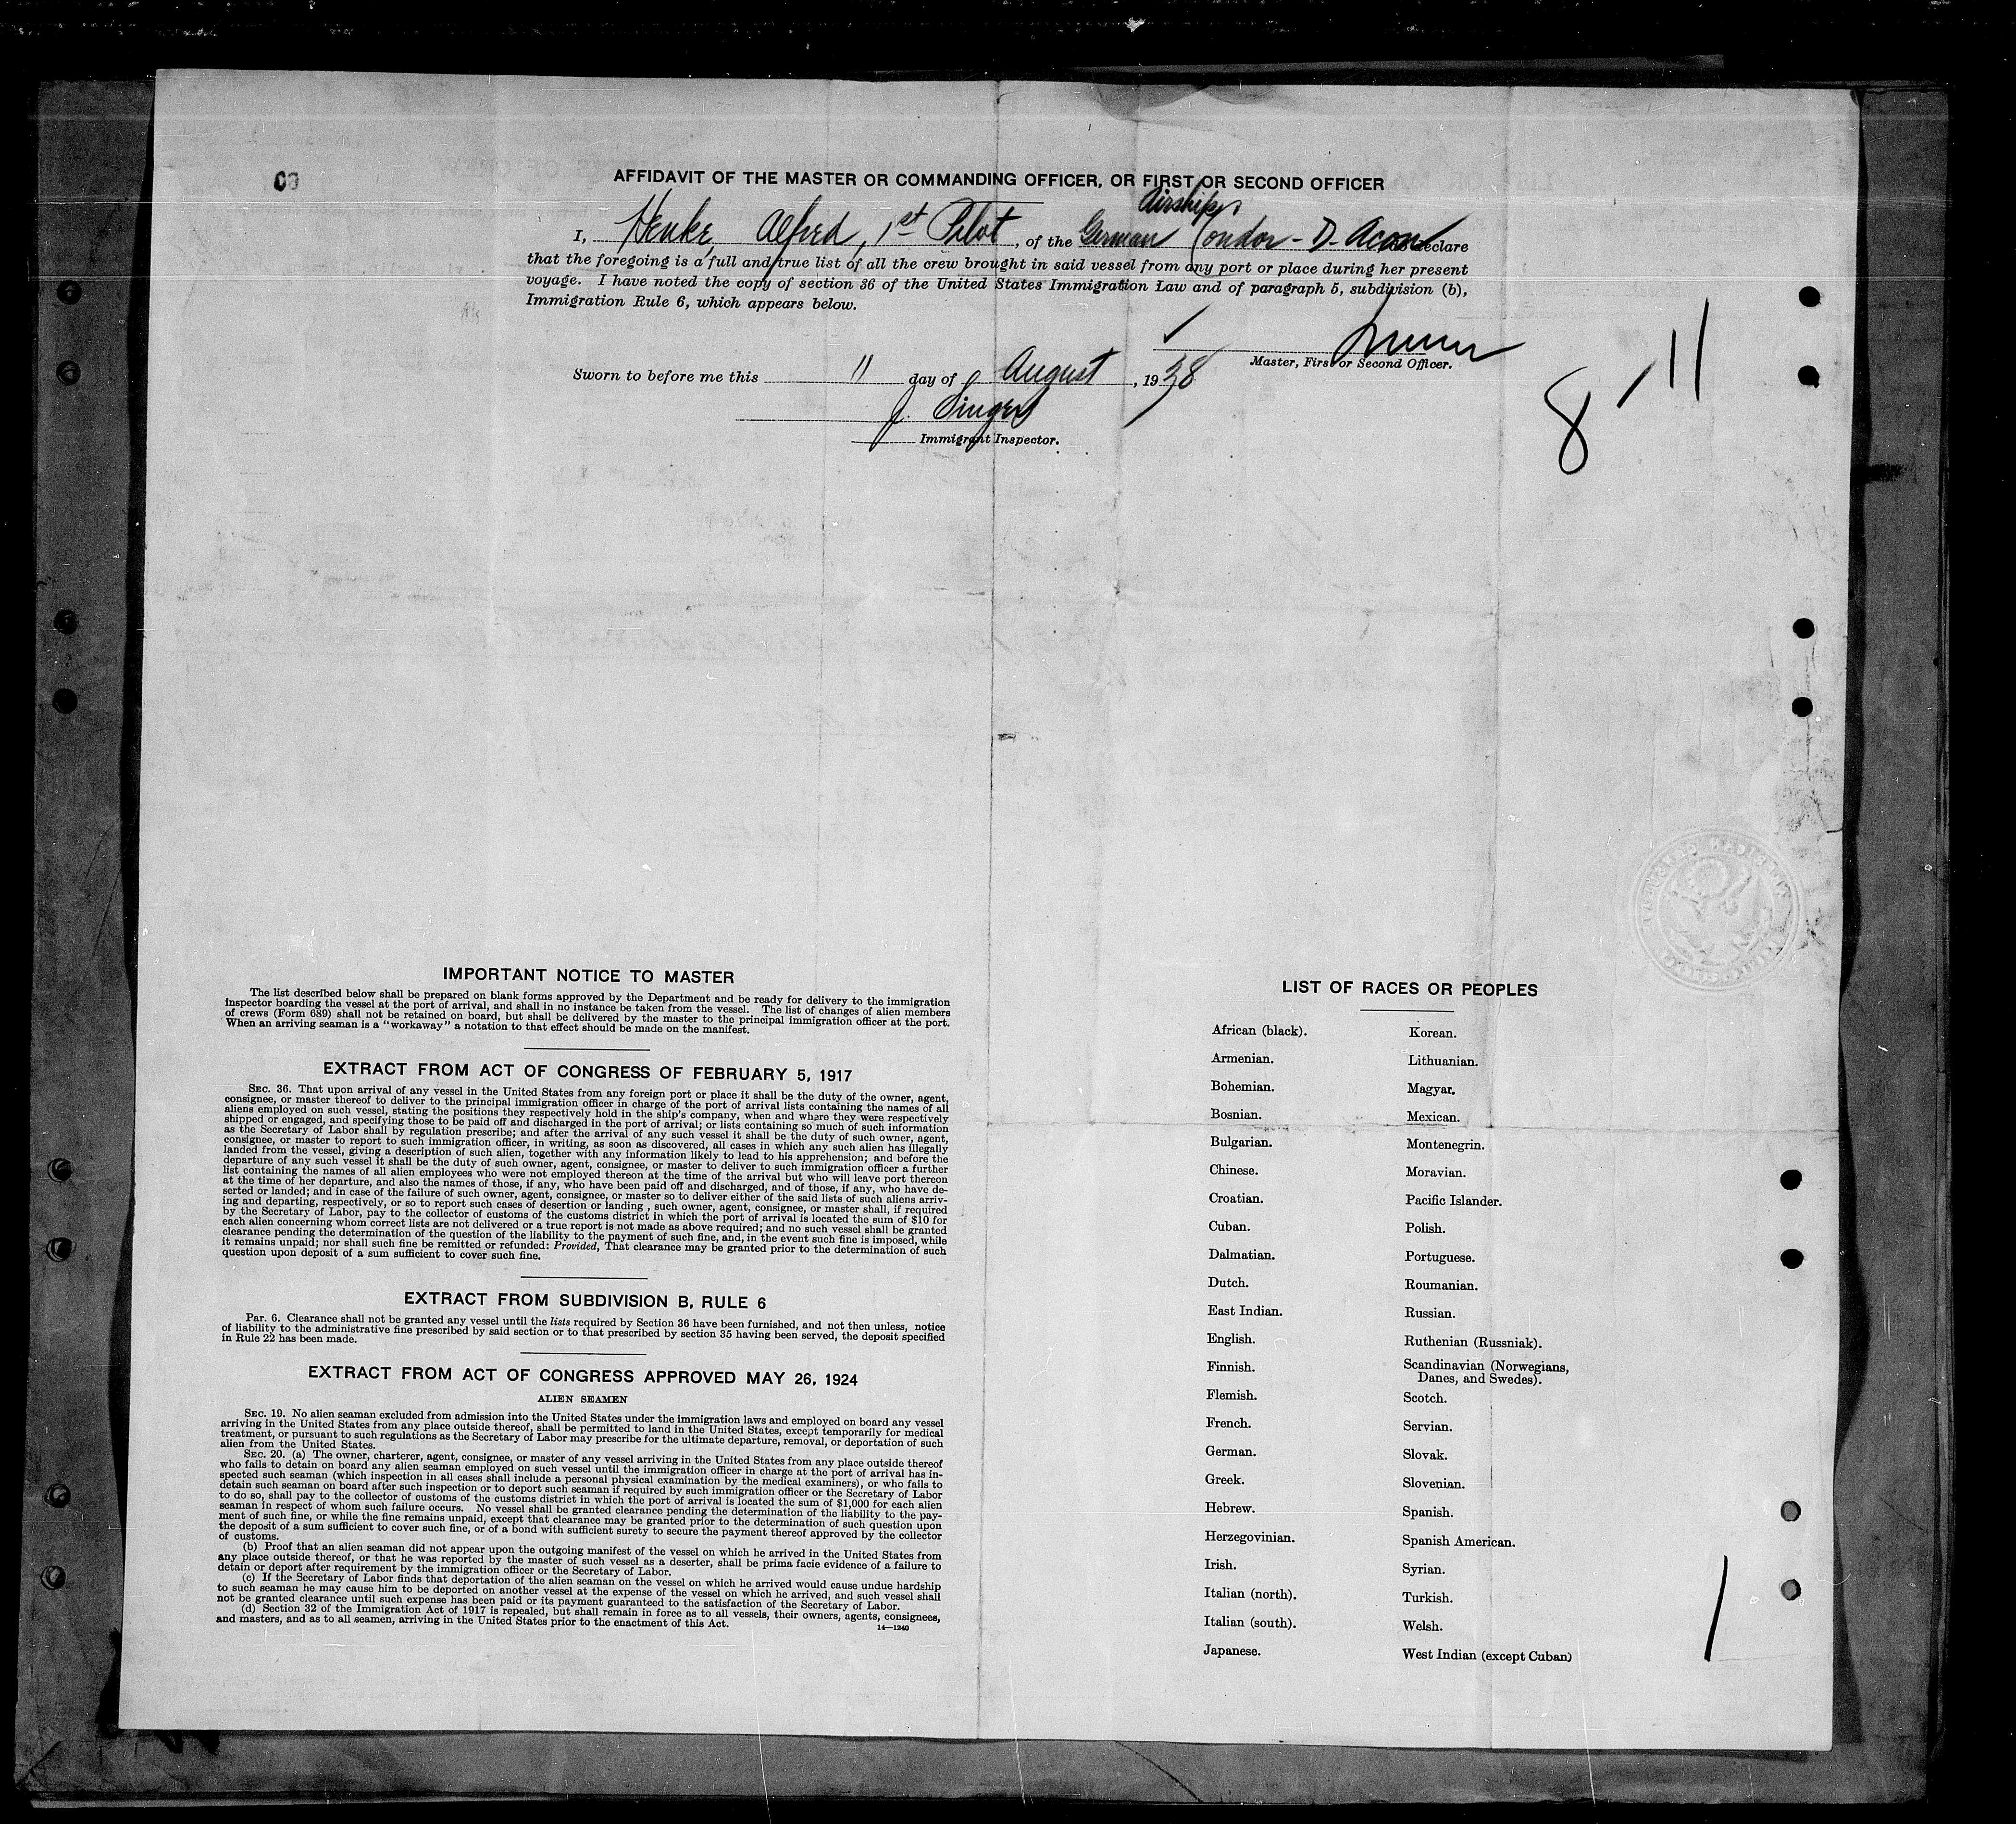 AFFIDAVIT OF THE MASTER OR COMMANDING OFFICER, OR FIRST OR SECOND OFFICER
Airship
I, Henke, Alfred, 1st Pilot, of the German Condor - D- Acon do declare
that the foregoing is a full and true list of all the crew brought in said vessel from any port or place during her present
voyage. I have noted the copy of section 36 of the United States Immigration Law and of paragraph 5, subdivision (b),
Immigration Rule 6, which appears below.
Master, First or Second Officer.
Sworn to before me this 11 day of August, 1938
J. Singer
Immigrant Inspector.
8/11
IMPORTANT NOTICE TO MASTER
The list described below shall be prepared on blank forms approved by the Department and be ready for delivery to the immigration
inspector boarding the vessel at the port of arrival, and shall in no instance be taken from the vessel. The list of changes of alien members
of crews (Form 689) shall not be retained on board, but shall be delivered by the master to the principal immigration officer at the port.
When an arriving seaman is a "workaway" a notation to that effect should be made on the manifest.
EXTRACT FROM ACT OF CONGRESS OF FEBRUARY 5, 1917
SEC. 36. That upon arrival of any vessel in the United States from any foreign port or place it shall be the duty of the owner, agent,
consignee, or master thereof to deliver to the principal immigration officer in charge of the port of arrival lists containing the names of all
aliens employed on such vessel, stating the positions they respectively hold in the ship's company, when and where they were respectively
shipped or engaged, and specifying those to be paid off and discharged in the port of arrival; or lists containing so much of such information
as the Secretary of Labor shall by regulation prescribe; and after the arrival of any such vessel it shall be the duty of such owner, agent,
consignee, or master to report to such immigration officer, in writing, as soon as discovered, all cases in which any such alien has illegally
landed from the vessel, giving a description of such alien, together with any information likely to lead to his apprehension; and before the
departure of any such vessel it shall be the duty of such owner, agent, consignee, or master to deliver to such immigration officer a further
list containing the names of all alien employees who were not employed thereon at the time of the arrival but who will leave port thereon
at the time of her departure, and also the names of those, if any, who have been paid off and discharged, and of those, if any, who have de-
serted or landed; and in case of the failure of such owner, agent, consignee, or master so to deliver either of the said lists of such aliens arriv-
ing and departing, respectively, or so to report such cases of desertion or landing , such owner, agent, consignee, or master shall, if required
by the Secretary of Labor, pay to the collector of customs of the customs district in which the port of arrival is located the sum of $10 for
each alien concerning whom correct lists are not delivered or a true report is not made as above required; and no such vessel shall be granted
clearance pending the determination of the question of the liability to the payment of such fine, and, in the event such fine is imposed, while
it remains unpaid; nor shall such fine be remitted or refunded: Provided, That clearance may be granted prior to the determination of such
question upon deposit of a sum sufficient to cover such fine.
EXTRACT FROM SUBDIVISION B, RULE 6
Par. 6. Clearance shall not be granted any vessel until the lists required by Section 36 have been furnished, and not then unless, notice
of liability to the administrative fine prescribed by said section or to that prescribed by section 35 having been served, the deposit specified
in Rule 22 has been made.
EXTRACT FROM ACT OF CONGRESS APPROVED MAY 26, 1924
ALIEN SEAMEN
SEC. 19. No alien seaman excluded from admission into the United States under the immigration laws and employed on board any vessel
arriving in the United States from any place outside thereof, shall be permitted to land in the United States, except temporarily for medical
treatment, or pursuant to such regulations as the Secretary of Labor may prescribe for the ultimate departure, removal, or deportation of such
alien from the United States.
SEC. 20. (a) The owner, charterer, agent, consignee, or master of any vessel arriving in the United States from any place outside thereof
who fails to detain on board any alien seaman employed on such vessel until the immigration officer in charge at the port of arrival has in-
spected such seaman (which inspection in all cases shall include a personal physical examination by the medical examiners), or who fails to
detain such seaman on board after such inspection or to deport such seaman if required by such immigration officer or the Secretary of Labor
to do so, shall pay to the collector of customs of the customs district in which the port of arrival is located the sum of $1,000 for each alien
seaman in respect of whom such failure occurs. No vessel shall be granted clearance pending the determination of the liability to the pay-
ment of such fine, or while the fine remains unpaid, except that clearance may be granted prior to the determination of such question upon
the deposit of a sum sufficient to cover such fine, or of a bond with sufficient surety to secure the payment thereof approved by the collector
of customs.
(b) Proof that an alien seaman did not appear upon the outgoing manifest of the vessel on which he arrived in the United States from
any place outside thereof, or that he was reported by the master of such vessel as a deserter, shall be prima facie evidence of a failure to
detain or deport after requirement by the immigration officer or the Secretary of Labor.
(c) If the Secretary of Labor finds that deportation of the alien seaman on the vessel on which he arrived would cause undue hardship
to such seaman he may cause him to be deported on another vessel at the expense of the vessel on which he arrived, and such vessel shall
not be granted clearance until such expense has been paid or its payment guaranteed to the satisfaction of the Secretary of Labor.
(d) Section 32 of the Immigration Act of 1917 is repealed, but shall remain in force as to all vessels, their owners, agents, consignees,
and masters, and as to all seamen, arriving in the United States prior to the enactment of this Act.
14—1240
LIST OF RACES OR PEOPLES
African (black).
Armenian.
Bohemian.
Bosnian.
Bulgarian.
Chinese.
Croatian.
Cuban.
Dalmatian.
Dutch.
East Indian.
English.
Finnish.
Flemish.
French.
German.
Greek.
Hebrew.
Herzegovinian.
Irish.
Italian (north).
Italian (south).
Japanese.
Korean.
Lithuanian.
Magyar.
Mexican.
Montenegrin.
Moravian.
Pacific Islander.
Polish.
Portuguese.
Roumanian.
Russian.
Ruthenian (Russniak).
Scandinavian (Norwegians,
Danes, and Swedes).
Scotch.
Servian.
Slovak.
Slovenian.
Spanish.
Spanish American.
Syrian.
Turkish.
Welsh.
West Indian (except Cuban)